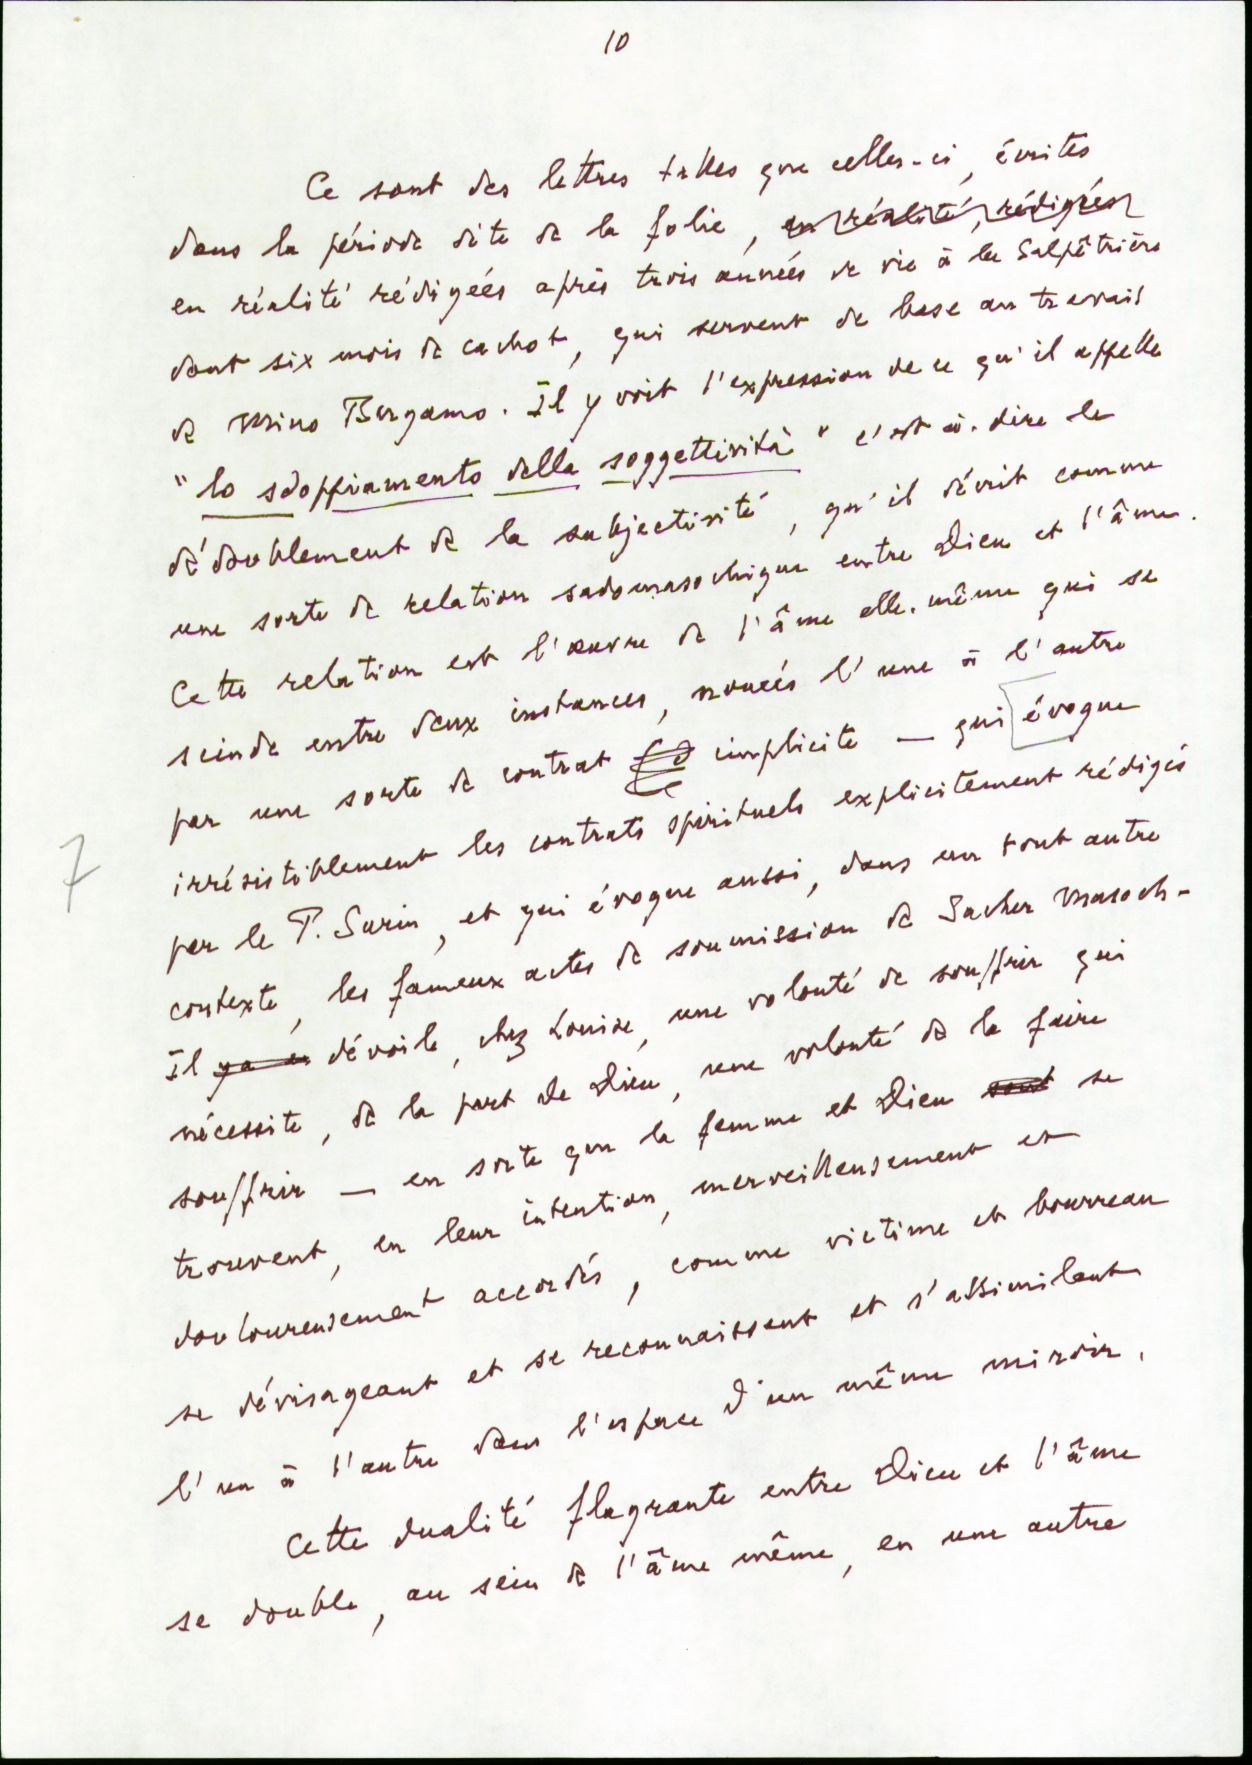 10
Ce sont des lettres telles que celles-ci, écrites
dans la période dite de la folie, en réalité, rédigées
en réalité rédigées après trois années de vie à la Salpêtrière
dont six mois de cachot, qui servent de base au travail
de Mino Bergamo. Il y voit l'expression de ce qu'il appelle
"lo sdoppiamento della soggettività" c'est-à-dire le
dédoublement de la subjectivité, qu'il décrit comme
une sorte de relation sadomasochique entre Dieu et l'âme.
Cette relation est l'œuvre de l'âme elle-même qui se
scinde entre deux instances, nouées l'une à l'autre
par une sorte de contrat implicite — qui évoque
irrésistiblement les contrats spirituels explicitement rédigés
7
par le P. Surin, et qui évoque aussi, dans un tout autre
contexte, les fameux actes de soumission de Sacher Masoch -
Il y a dévoile, chez Louise, une volonté de souffrir qui
nécessite, de la part de Dieu, une volonté de la faire
souffrir — en sorte que la femme et Dieu sont se
trouvent, en leur intention, merveilleusement et
douloureusement accordés, comme victime et bourreau
se dévisageant et se reconnaissent et s'assimilent
l'un à l'autre dans l'espace d'un même miroir.
Cette dualité flagrante entre Dieu et l'âme
se double, au sein de l'âme même, en une autre